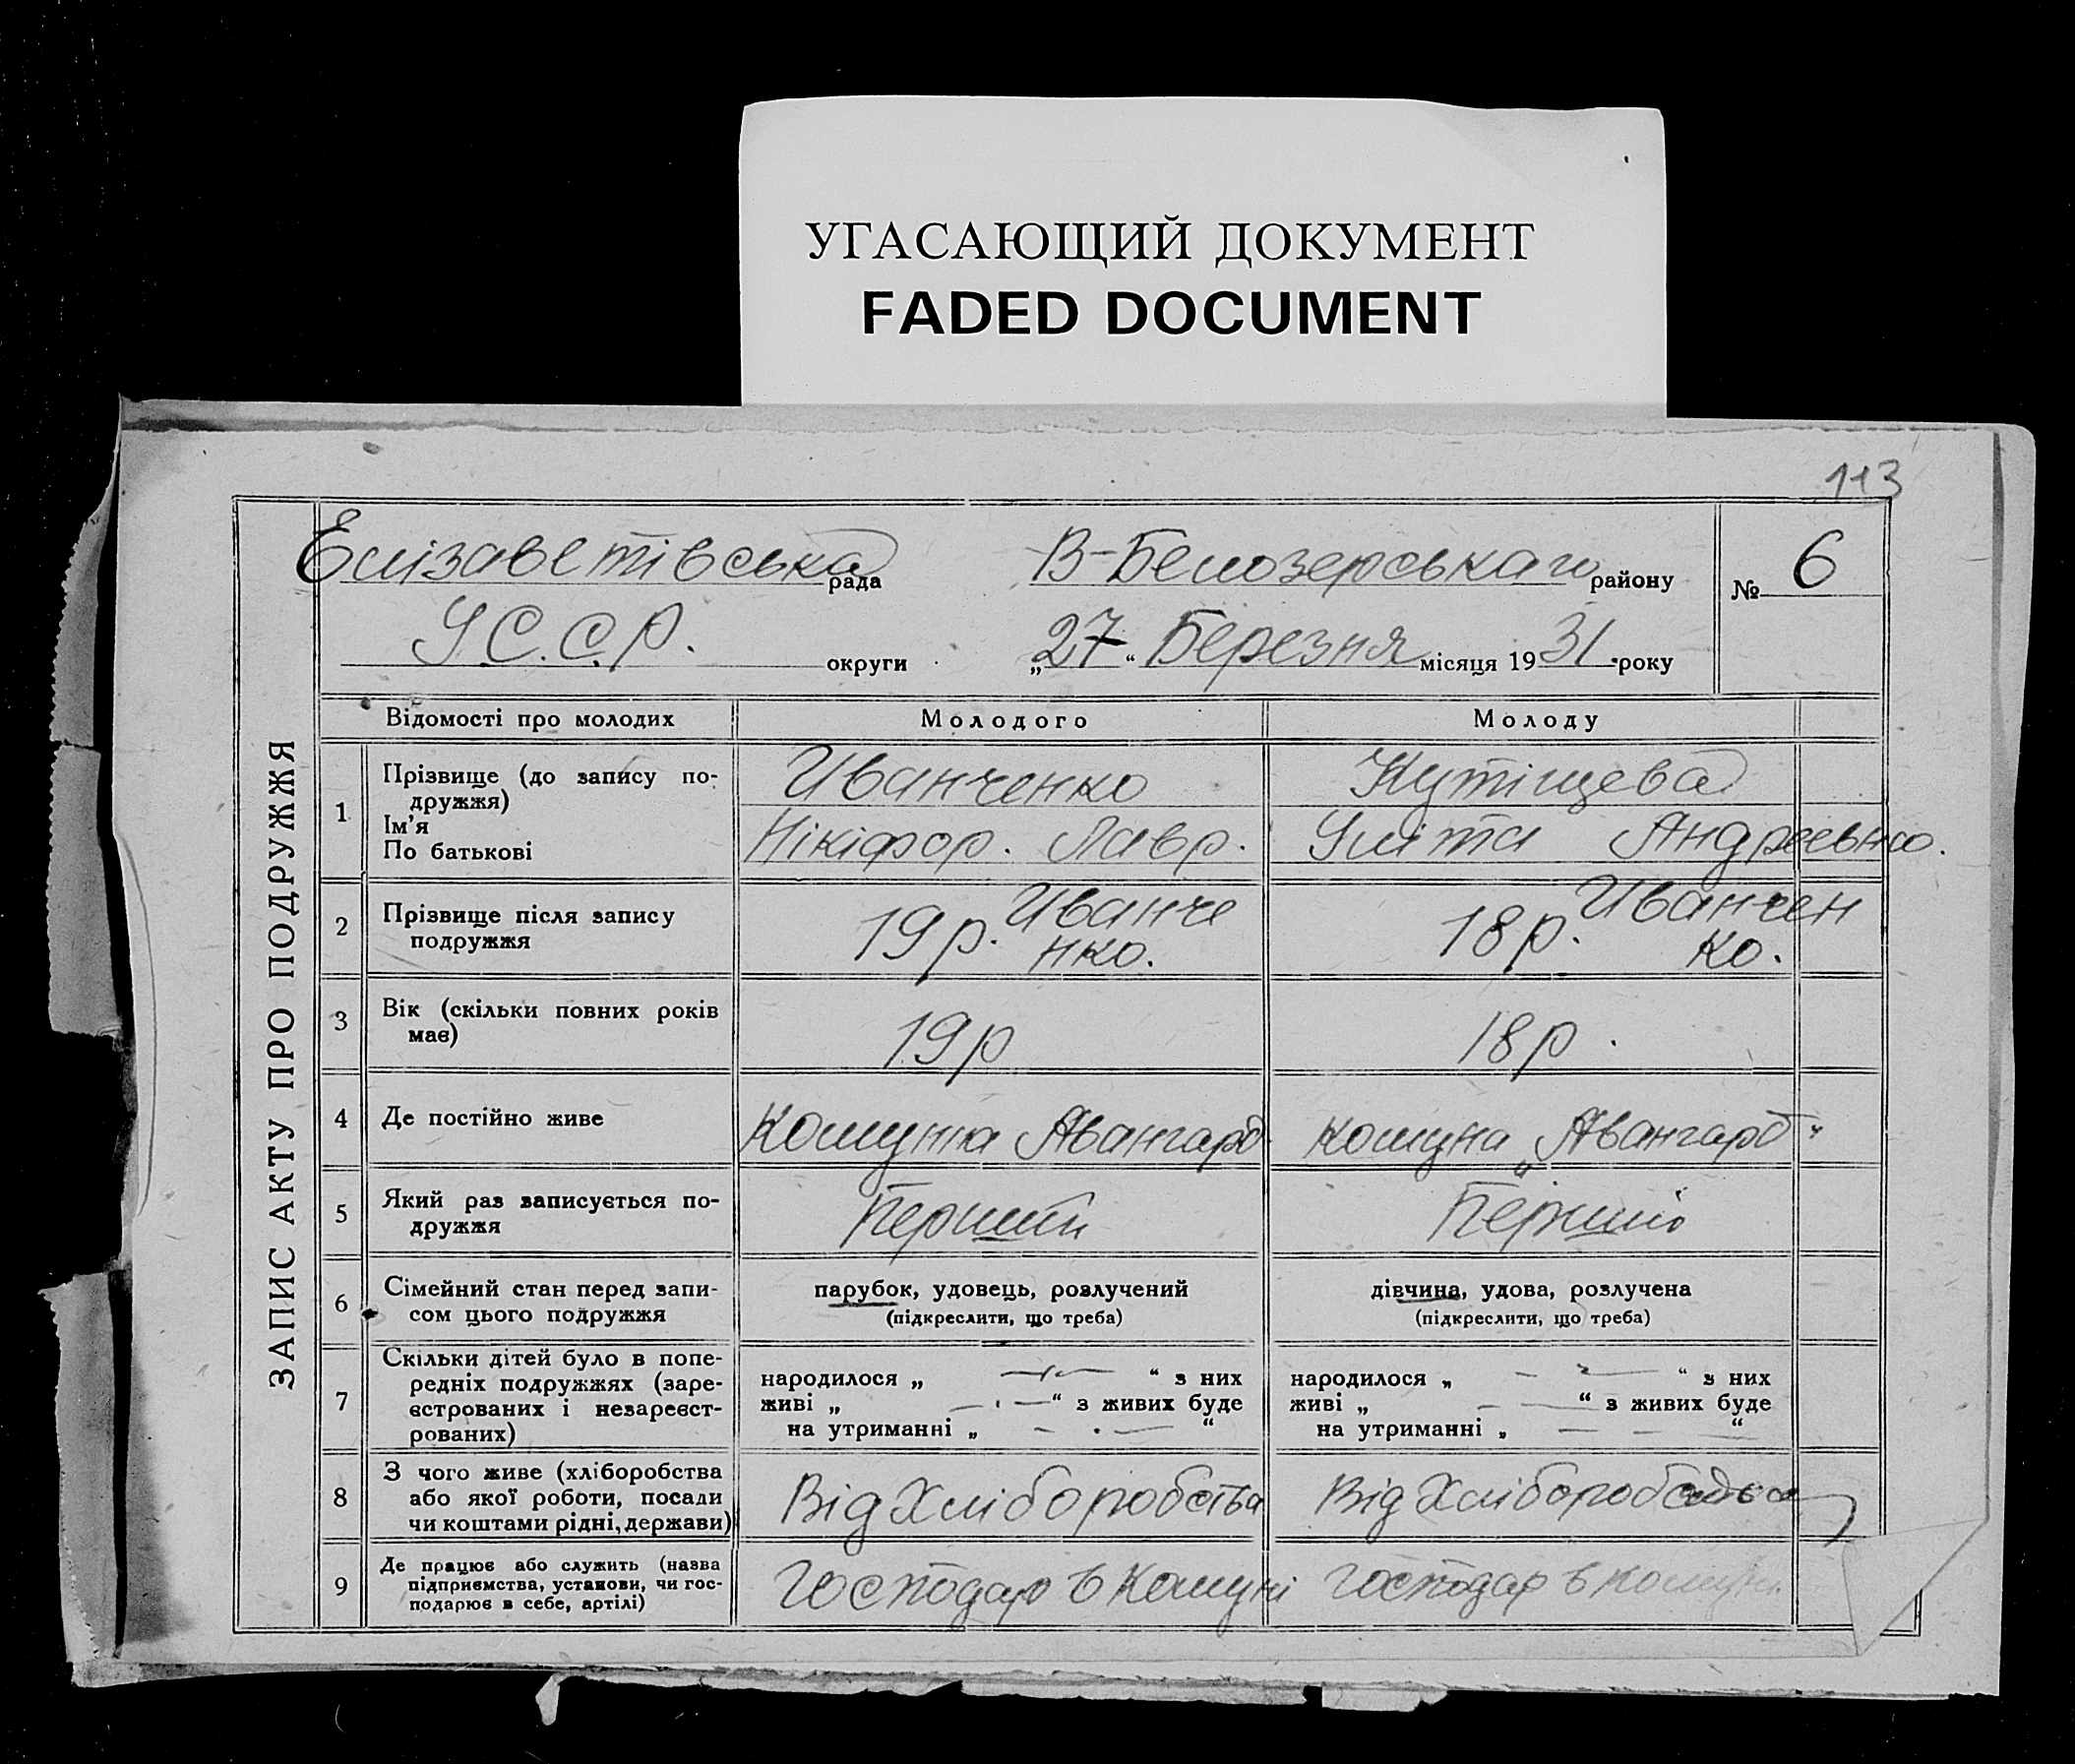 УГАСАЮЩИЙ ДОКУМЕНТ
FADED DOCUMENT
113
ЗАПИС АКТУ ПРО ПОДРУЖЖЯ
Елізаветівська рада В-Белозерськаго району № 6
УС.С.Р. округи „27“ Березня місяця 1931 року
Відомості про молодих Молодого Молоду
1 Прізвище (до запису по-
дружжя)
Ім’я
По батькові
Иванченко
Нікіфор. Лавр.
Кутіщева
Уліта Андреевна.
2 Прізвище після запису
подружжя
19р. Иванче
нко.
18р. Иванчен
ко.
3 Вік (скільки повних років
має)
19р
18р.
4 Де постійно живе
Комуна Авангард
комуна „Авангард“
5 Який раз записується по-
дружжя
Перший
Перший
6 Сімейний стан перед запи-
сом цього подружжя
парубок, удовець, розлучений
(підкреслити, що треба)
дівчина, удова, розлучена
(підкреслити, що треба)
7 Скільки дітей було в попе-
редніх подружжях (заре-
єстрованих і незареєст-
рованих)
народилося „ — “ з них
живі „ — “ з живих буде
на утриманні „ — “
народилося „ — “ з них
живі „ — “ з живих буде
на утриманні „ — “
8 З чого живе (хліборобства
або якої роботи, посади
чи коштами рідні, держави)
Від Хліборобства
Від Хліборобства
9 Де працює або служить (назва
підприємства, установи, чи гос-
подарює в себе, артілі)
Господар в Комуні
Господар в комуні